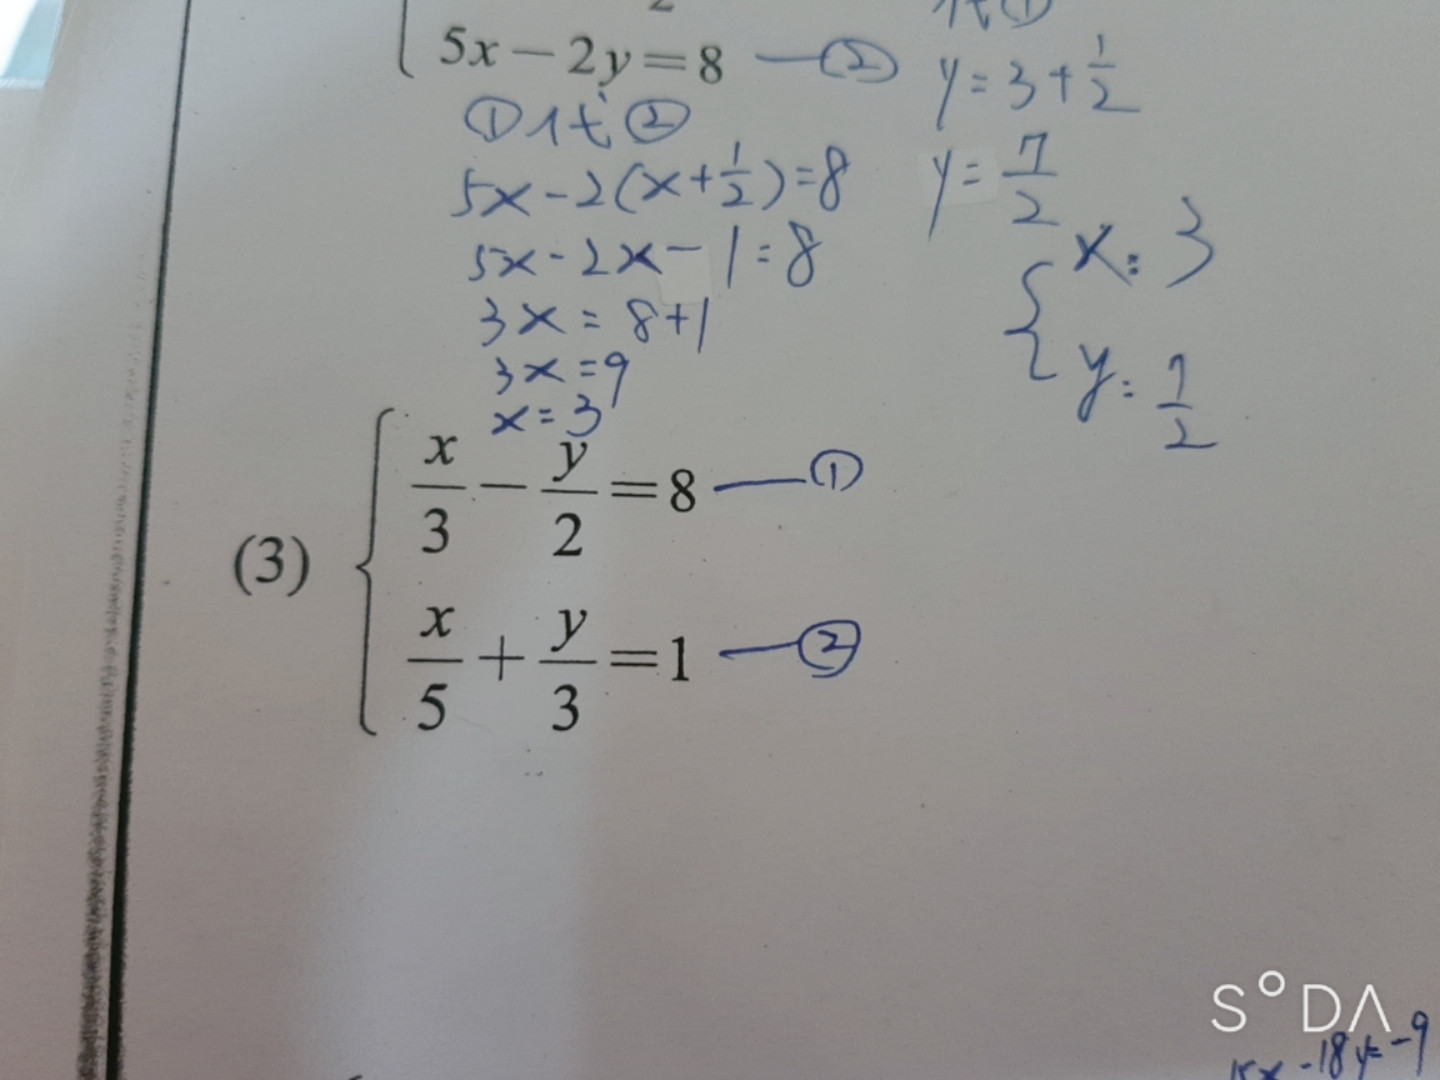 5x－2y＝8 —②
①代②
5x-2(x+1/2)=8
5x-2x-1=8
3x=8+1
3x=9
x=3
代①
y=3+1/2
y=7/2
{x=3
y=7/2
(3) {x/3－y/2＝8 —①
x/5＋y/3＝1 —②
SODA
15x-18y=-9